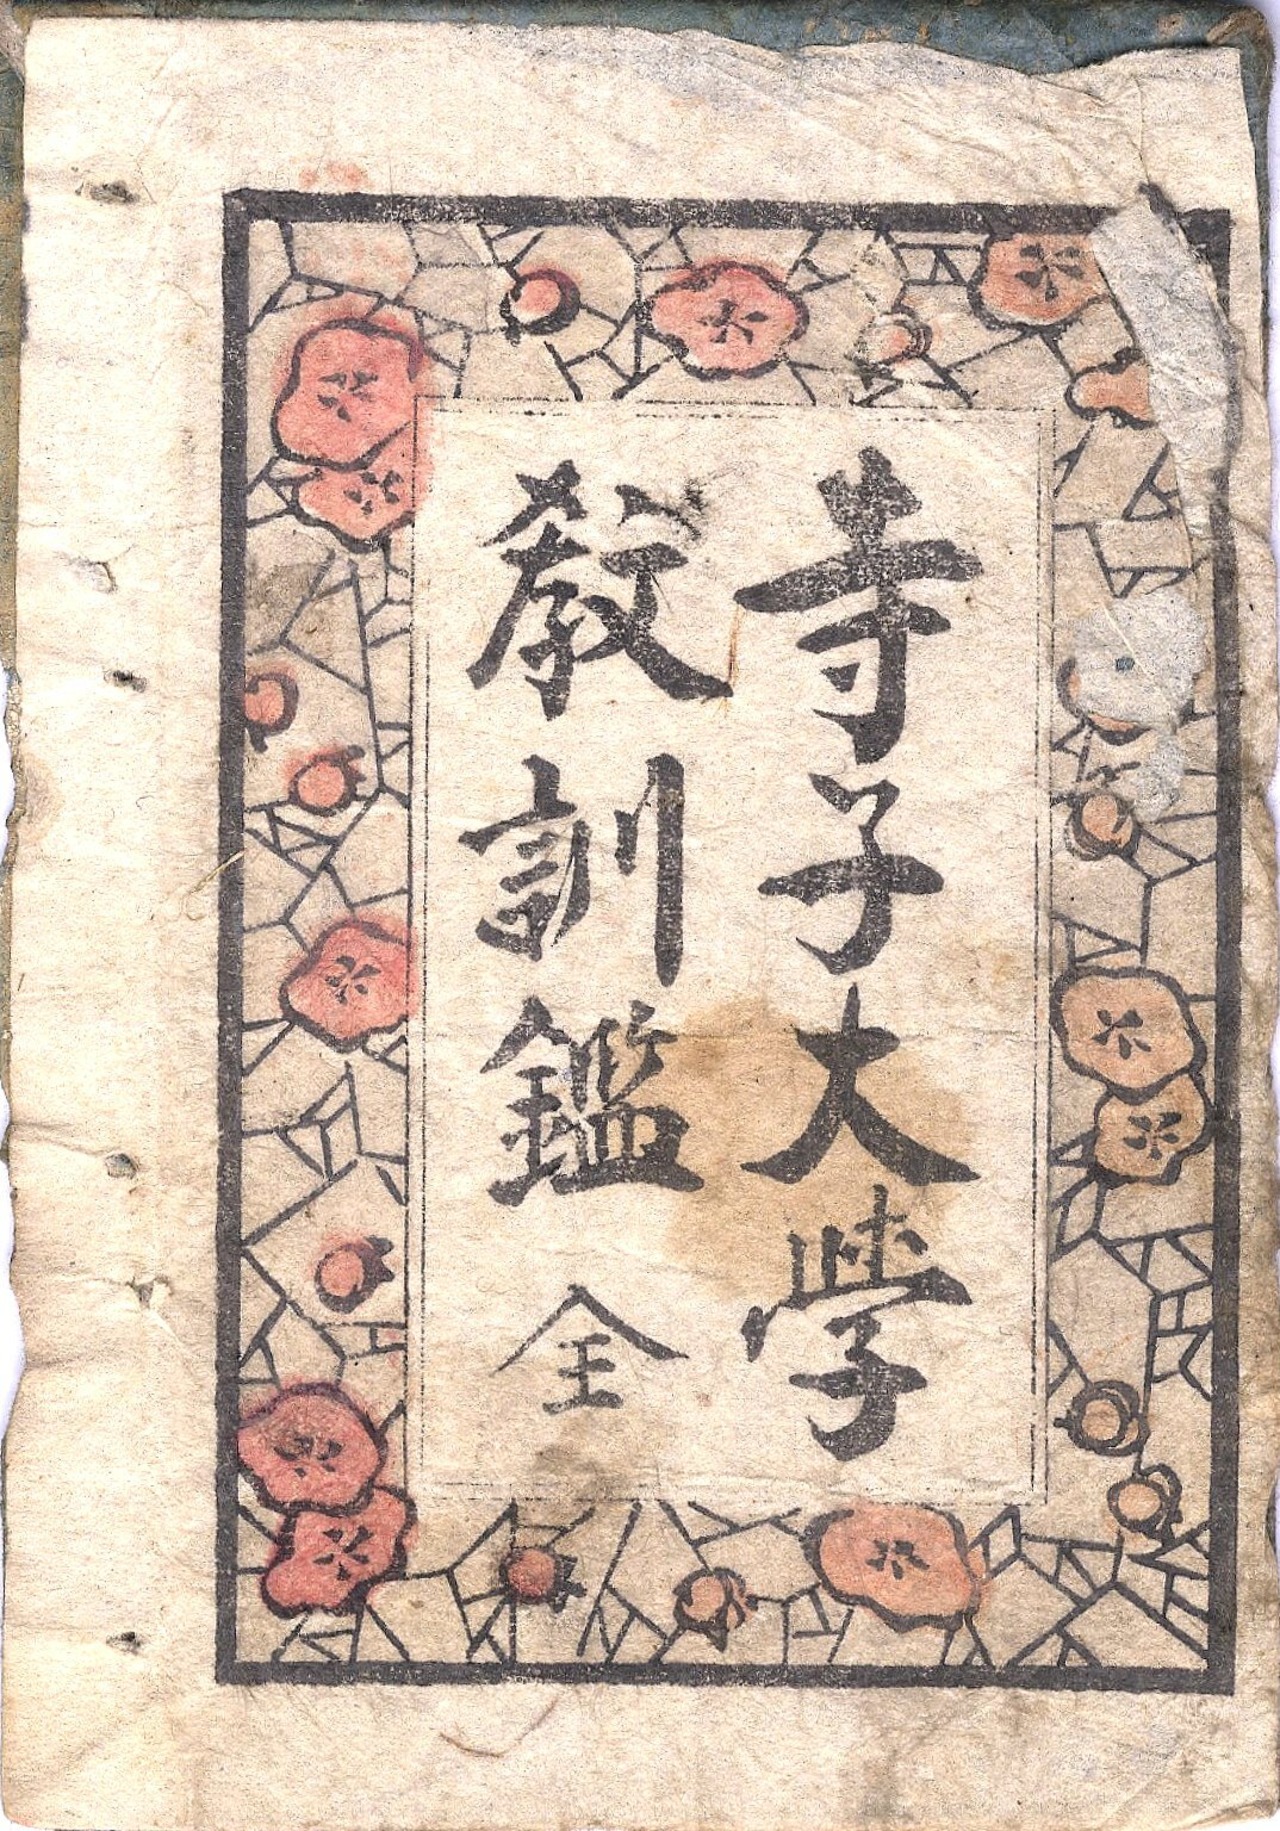 寺子大學
教訓鑑 全